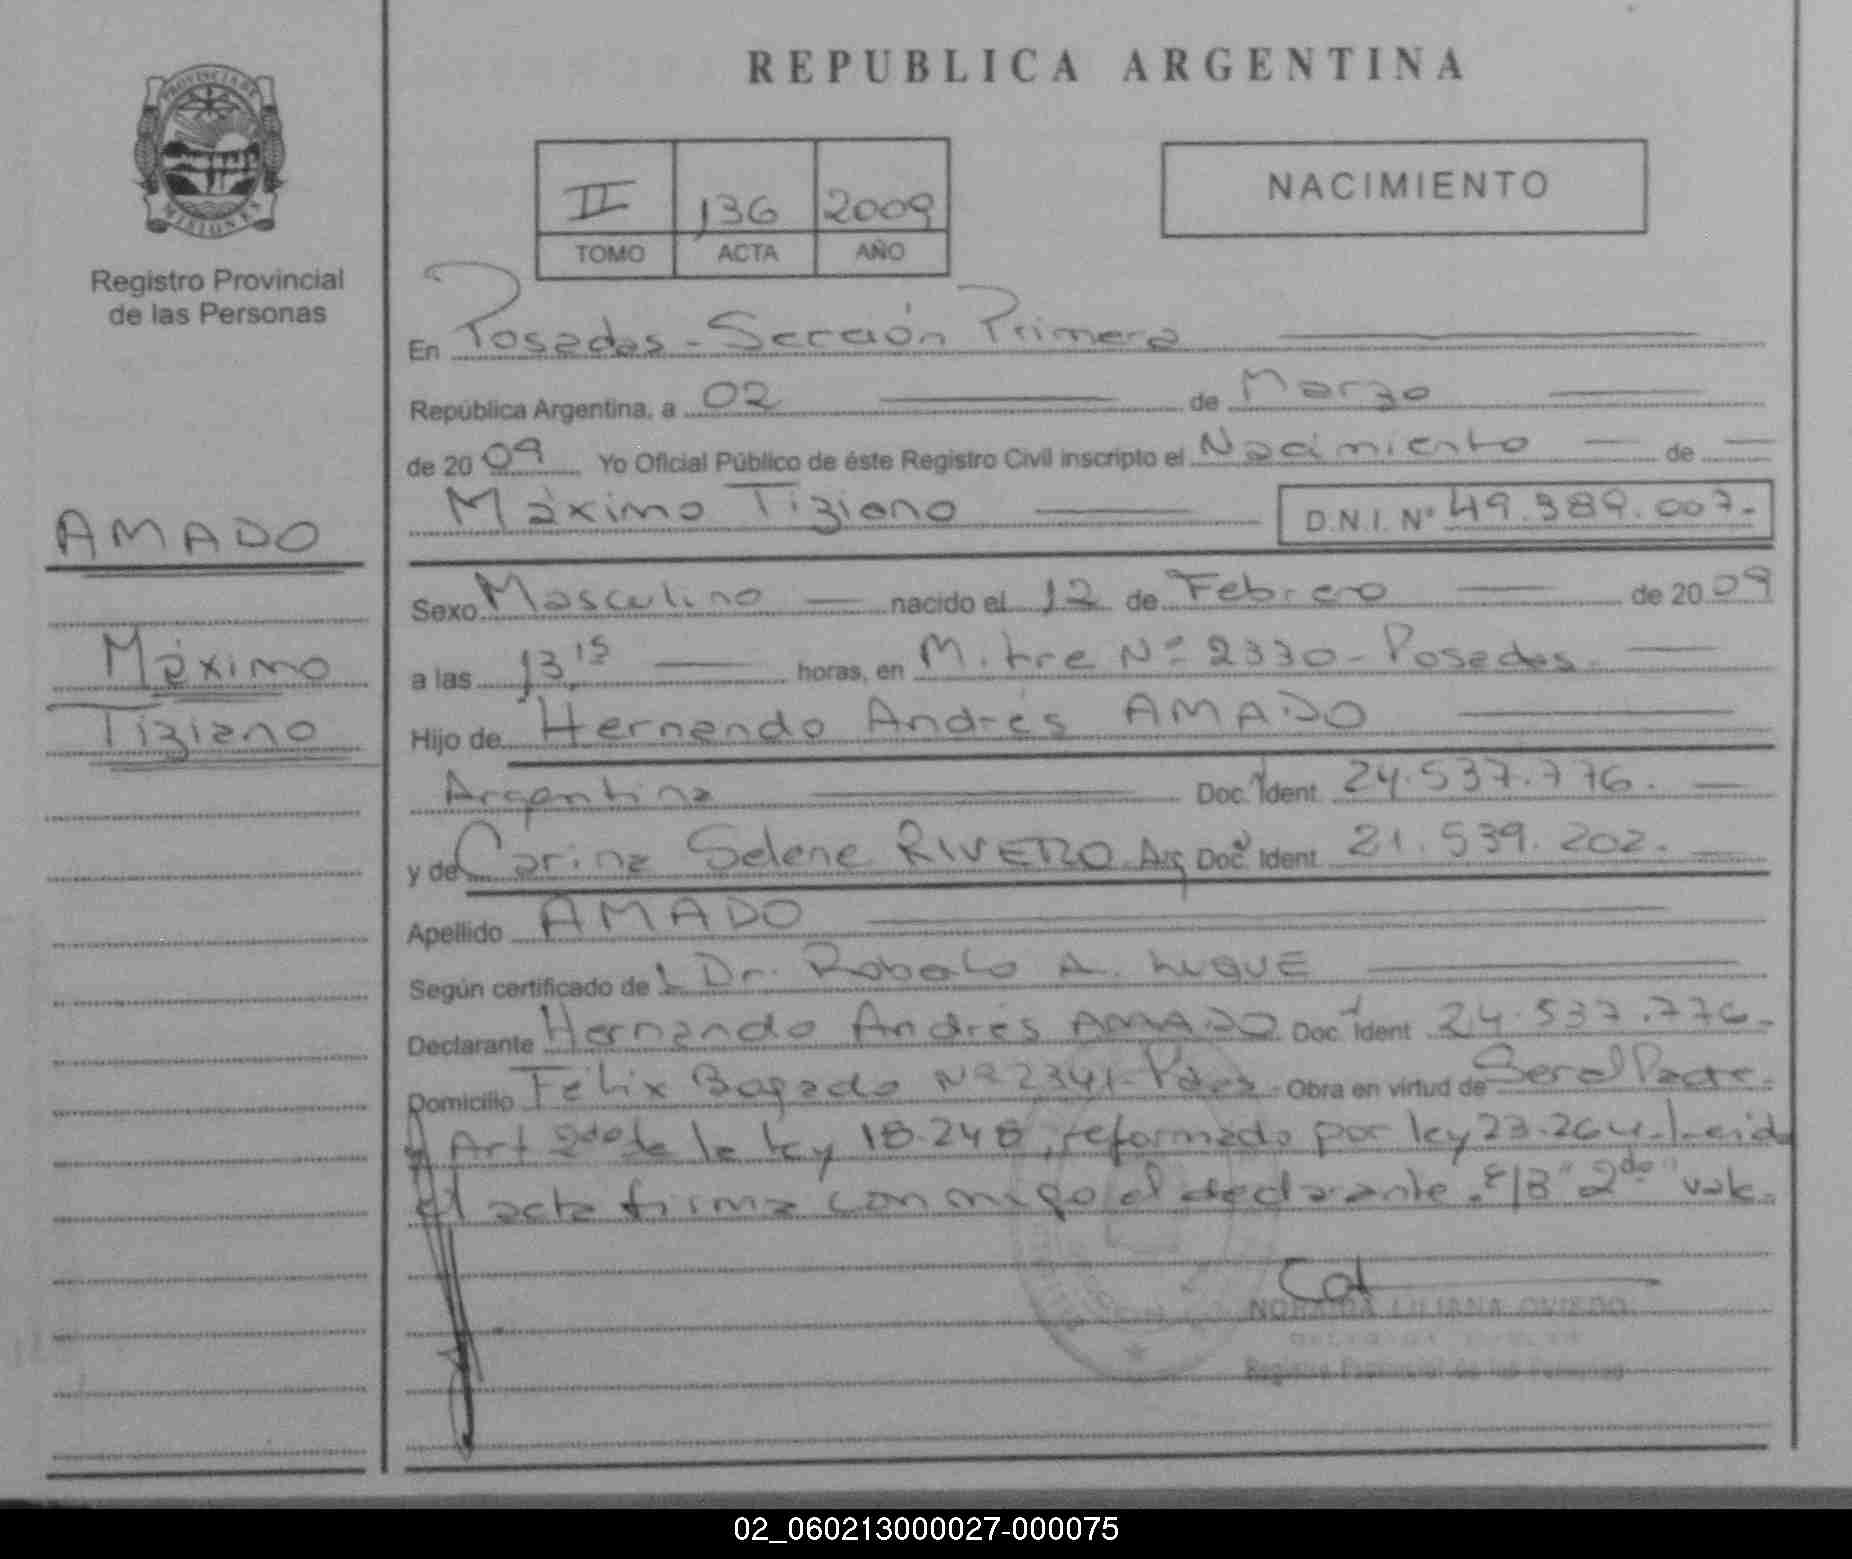 REPUBLICA ARGENTINA
PROVINCIA DE
MISIONES
Registro Provincial
de las Personas
II 136 2009
TOMO ACTA AÑO
NACIMIENTO
En Posadas - Sección Primera
República Argentina, a 02 de Marzo
de 2009 Yo Oficial Público de éste Registro Civil inscripto el Nacimiento de
Máximo Tiziano D.N.I. Nº 49.389.007.-
AMADO
Máximo
Tiziano
Sexo Masculino nacido el 12 de Febrero de 2009
a las 13,15 horas, en Mitre Nº 2330 - Posadas.
Hijo de Hernando Andrés AMADO
Argentina Doc. Ident. 24.537.776.
y de Carina Selene RIVERO Arg Doc. Ident. 21.539.202.
Apellido AMADO
Según certificado de Dr. Roberto A. LUQUE
Declarante Hernando Andrés AMADO Doc. Ident 24.537.776.
Domicilio Félix Bogado Nº 2341 - Pdas. Obra en virtud de Ser el Padre.
y Art 2do de la ley 18.248, reformado por ley 23.264. Leida
el acta firma conmigo el declarante. E/B "2do" vale.
NORAIDA LILIANA OVIEDO
Registro Provincial de las Personas
02_060213000027-000075